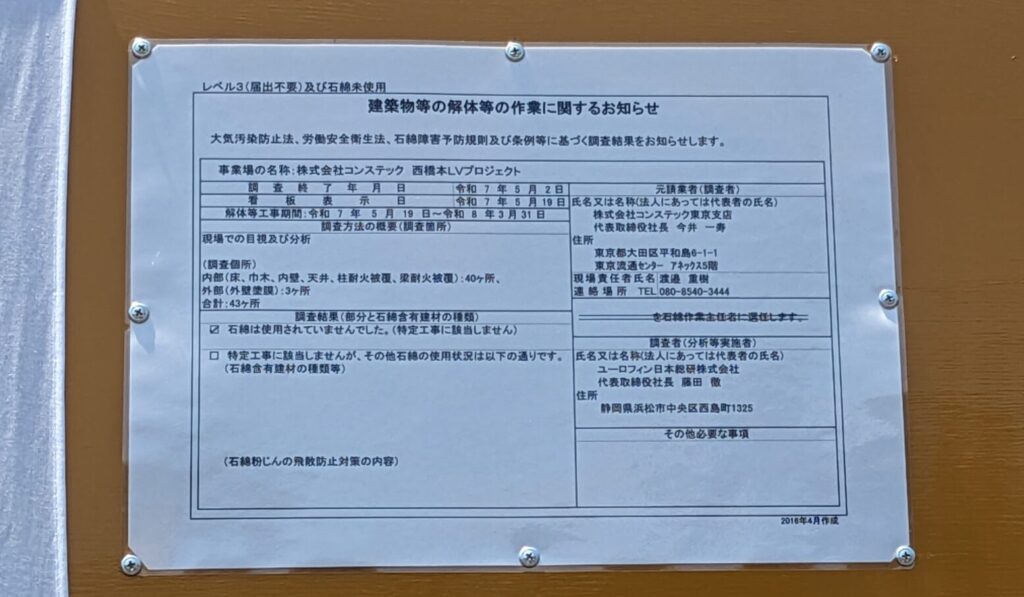 レベル3(届出不要)及び石綿未使用
建築物等の解体等の作業に関するお知らせ
大気汚染防止法、労働安全衛生法、石綿障害予防規則及び条例等に基づく調査結果をお知らせします。
事業場の名称:株式会社コンステック 西橋本LVプロジェクト
調査終了年月日 令和 7 年 5 月 2 日
看板表示日 令和 7 年 5 月 19 日
解体等工事期間:令和 7 年 5 月 19 日~令和 8 年 3 月 31 日
調査方法の概要(調査箇所)
現場での目視及び分析
(調査個所)
内部(床、巾木、内壁、天井、柱耐火被覆、梁耐火被覆):40ヶ所、
外部(外壁塗膜):3ヶ所
合計:43ヶ所
調査結果(部分と石綿含有建材の種類)
☑ 石綿は使用されていませんでした。(特定工事に該当しません)
□ 特定工事に該当しませんが、その他石綿の使用状況は以下の通りです。
(石綿含有建材の種類等)
(石綿粉じんの飛散防止対策の内容)
元請業者(調査者)
氏名又は名称(法人にあっては代表者の氏名)
株式会社コンステック東京支店
代表取締役社長 今井 一寿
住所
東京都大田区平和島6-1-1
東京流通センター アネックス5階
現場責任者氏名 渡邉 重樹
連絡場所 TEL 080-8540-3444
を石綿作業主任者に選任します。
調査者(分析等実施者)
氏名又は名称(法人にあっては代表者の氏名)
ユーロフィン日本総研株式会社
代表取締役社長 藤田 徹
住所
静岡県浜松市中央区西島町1325
その他必要な事項
2016年4月作成